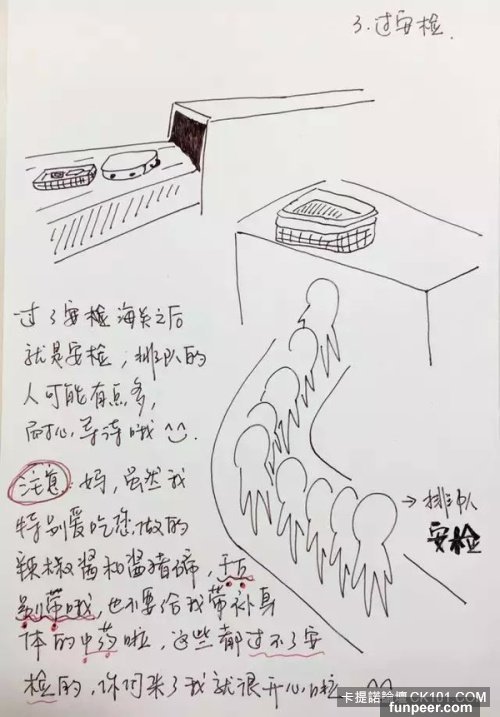 3.过安检.
过了安检海关之后
就是安检，排队的
人可能有点多，
耐心等待哦
→排队
安检
注意 妈，虽然我
特别爱吃您做的
辣椒酱和酱猪蹄，千万
别带哦，也不要给我带补身
体的中药啦，这些都过不了安
检的，你们来了我就很开心啦
卡提諾論壇 CK101.COM
funpeer.com